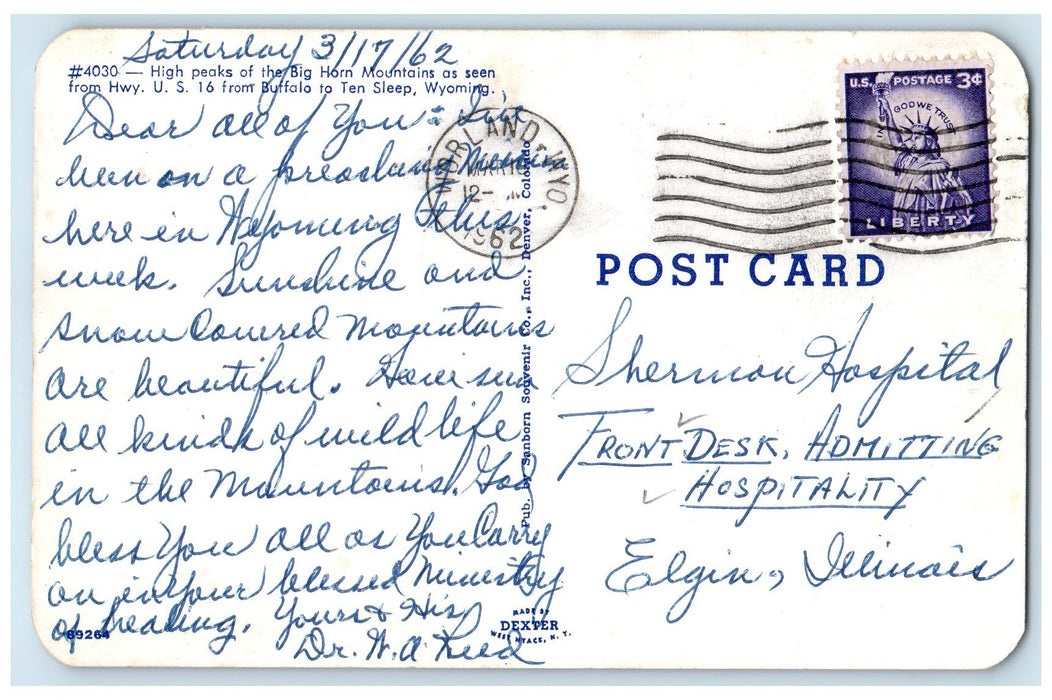 Saturday 3/17/62
#4030 — High peaks of the Big Horn Mountains as seen
from Hwy. U. S. 16 from Buffalo to Ten Sleep, Wyoming.
Dear all of You: I've
been on a preaching mission
here in Wyoming this
week. Sunshine and
snow Covered Mountains
are beautiful. Have seen
all kinds of wild life
in the Mountains. God
bless You all as You Carry
on in Your blessed Ministry
of healing. Yours & His,
Dr. W. A.
89264
Pub. by Sanborn Souvenir Co., Inc., Denver, Colorado
MADE BY
DEXTER
WEST NYACK, N. Y.
WORLAND, WYO
MAR
12-
1962
U.S. POSTAGE 3¢
IN GOD WE TRUST
LIBERTY
POST CARD
Sherman Hospital
FRONT DESK, ADMITTING
HOSPITALITY
Elgin, Illinois